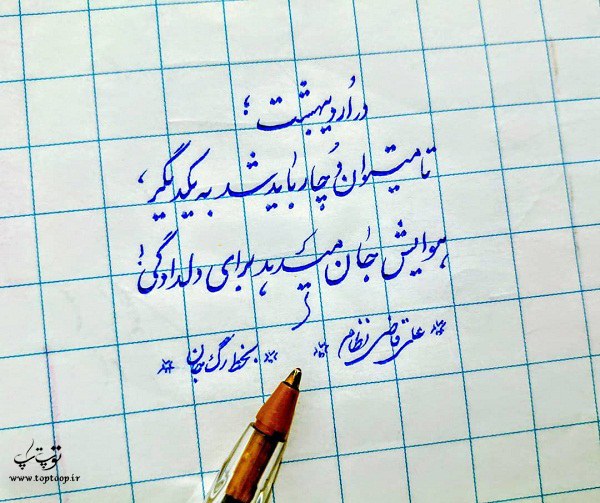 در اُردیبهشت ؛
تا میتوان دُچار باید شد به یکدیگر،
هوایش جان میدهد برای دلدادگی!
علی قاضی نظام
بخط رگ جان
توپ تاپ
www.toptoop.ir